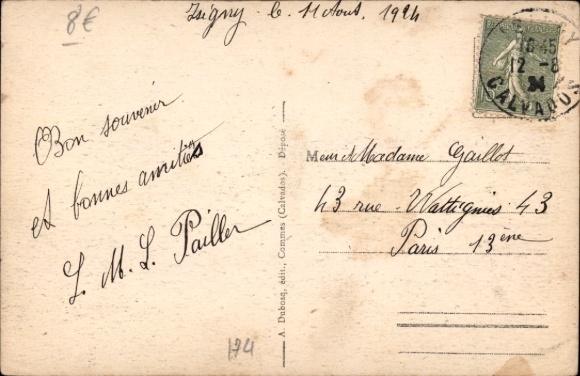 8€
Isigny le 11 Aout 1924
16 45
12 -8
24
CALVADOS
Bon souvenir
et bonnes amitiés
L. M. L. Pailler
174
A. Dubosq, édit., Commes (Calvados). Déposé
M eur et Madame Gaillot
43 rue Wattignies 43
Paris 13 ème